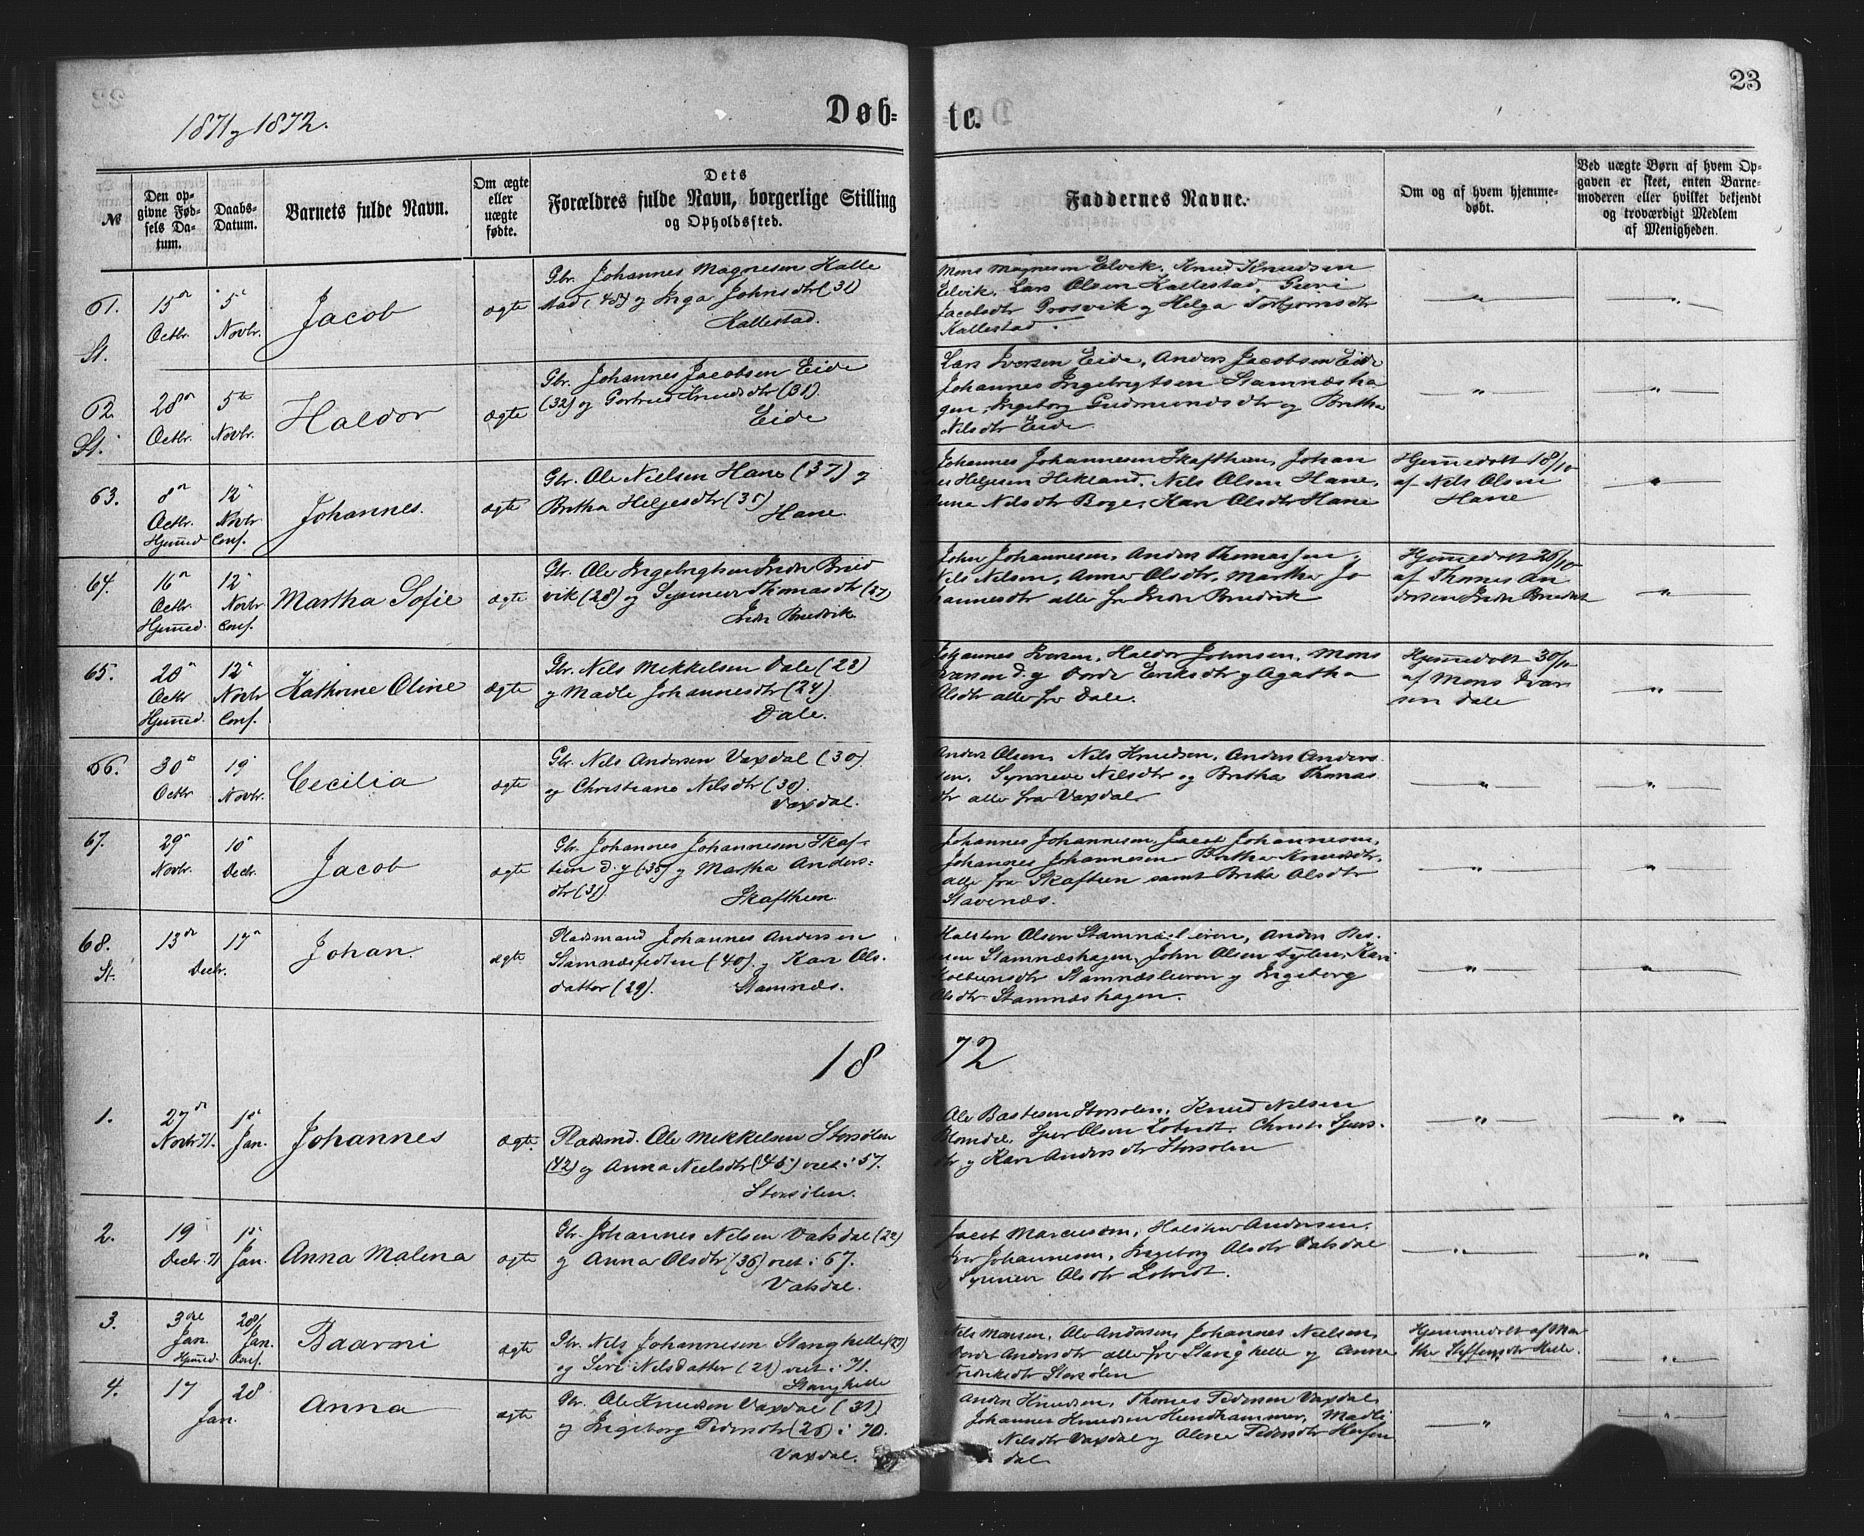 23
1871 og 1872.
Døb-
te.
№
Den op-
givne Fød-
sels Da-
tum.
Daabs-
Datum.
Barnets fulde Navn.
Om ægte
eller
uægte
fødte.
Dets
Forældres fulde Navn, borgerlige Stilling
og Opholdssted.
Faddernes Navne.
Om og af hvem hjemme-
døbt.
Ved uægte Børn af hvem Op-
gaven er skeet, enten Barne-
moderen eller hvilket bekjendt
og troværdigt Medlem
af Menigheden.
61.
St.
15de
Octbr.
5te
Novbr.
Jacob
ægte
Gbr. Johannes Magnesen Kalle
stad (48) og Inga Johnsdtr (31)
Kallestad.
Mons Magnesen Elvik, Knud Knudsen
Elvik, Lars Olsen Kallestad, Guri
Jacobsdtr Grosvik og Helga Torbjørnsdtr
Kallestad.
62.
St.
28de
Octbr.
5te
Novbr.
Haldor
ægte
Gbr. Johannes Jacobsen Eide
(32) og Gertrud Knudsdtr (31).
Eide
Lars Iversen Eide, Anders Jacobsen Eide
Johannes Ingebrigtsen Stamnæsha
gen, Ingeborg Gudmundsdtr og Britha
Nilsdtr Eide
63.
8de
Octbr.
Hjemmed
12te
Novbr
Conf.
Johannes.
ægte
Gbr. Ole Nielsen Hane (37) og
Britha Helgesdtr (35)
Hane.
Johannes Johannesen Skafthun, Johan
nes Helgesen Hekland, Nils Olsen Hane,
Anna Nilsdtr Boge, Kari Olsdtr Hane
Hjemmedøbt 18/10
af Nils Olsen
Hane
64.
16de
Octbr
Hjemmed.
12te
Novbr
Conf.
Martha Sofie
ægte
Gbr. Ole Ingebrigtsen Indr Bred
vik (28) og Synneve Thomasdtr
Indr Bredvik
John Johannesen, Anders Thomassen,
Nils Nilsen, Anna Olsdtr, Martha Jo
hannesdtr alle fra Indr Bredvik
Hjemmedøbt 26/10
af Thomas An
dersen Indr Bredvik
65.
28de
Octbr
Hjemmed
12te
Novbr
Conf.
Kathrine Oline
ægte
Gbr. Nils Mikkelsen Dale (23)
og Madle Johannesdtr (24).
Dale.
Johannes Iversen, Haldor Johnsen, Mons
Ivarsen d.y Eriksdtr og Agatha
Olsdtr alle fra Dale.
Hjemmedøbt 30/10
af Mons Ivar
sen Dale
66.
30te
Octbr
19de
Novbr.
Cecilia
ægte
Gbr. Nils Andersen Vaxdal (30)
og Christiane Nilsdtr (30).
Vaxdal.
Anders Olsen, Nils Knudsen, Anders Anders
sen, Synneve Nilsdtr og Britha Thomas
dtr alle fra Vaxdal.
67.
29de
Novbr.
10de
Decbr.
Jacob
ægte
Gbr. Johannes Johannesen Skaf-
teen d.y (35) og Martha Anders-
dtr (31).
Skafthun.
Johannes Johannesen, Jacob Johannesen,
Johannes Johannesen Britha Knudsdtr,
alle fra Skafteen samt Brita Olsdtr
Stavenæs.
68.
St.
13de
17de
Decbr.
Johan.
ægte.
Pladsmand Johannes Andersen
Stamnæsfedten (40) og Kari Ols-
datter (29).
Stamnæs.
Halsten Olsen Stamnæsleiren, Anders
Stamnæshagen, John Olsen
Stamnæsleiren og Ingeborg
Olsdtr Stamnæshagen.
1872
1.
27de
Novbr 71.
1ste
Jan.
Johannes
ægte.
Pladsmd. Ole Mikkelsen Storsølen
(42) og Anna Nielsdtr (45) viet i 57.
Storsølen.
Ole Bastesen Storsølen, Knud Nilsen
Blomdal, Sjur Olsen Christi Sjurs-
dtr og Kari Andersdtr Storsølen
2.
19
Decbr. 71
1ste
Jan.
Anna Malena
ægte
Gbr. Johannes Nilsen Vaksdal (22)
og Anna Olsdtr (36) viet i 67.
Vaksdal.
Jacob Marcusen, Halsten Andersen,
Iver Johannesen, Ingeborg Olsdtr Vaksdal
og Synneve Olsdtr
3.
3die
Jan.
Hjemmed
28/
Jan.
Conf.
Baarni
ægte
Gbr. Nils Johannesen Stanghelle (27)
og Siri Nilsdatter (21) viet i 71.
Stanghelle
Nils Monsen, Ole Andersen, Johannes Nielsen
Andersdtr alle fra Stanghelle og Anna
Fredriksdtr Storsølen
Hjemmedøbt af Mar
the Steffensdtr Helle.
4.
17
28
Jan.
Anna
ægte
Gbr. Ole Knudsen Vaxdal (31)
og Ingeborg Pedersdtr (26) i 70.
Vaxdal.
Anders Knudsen, Thomas Pedersen Vaxdal,
Johannes Knudsen Hundhammer, Madli
Nilsdtr Vaxdal og Olena Pedersdtr Herfin
dal